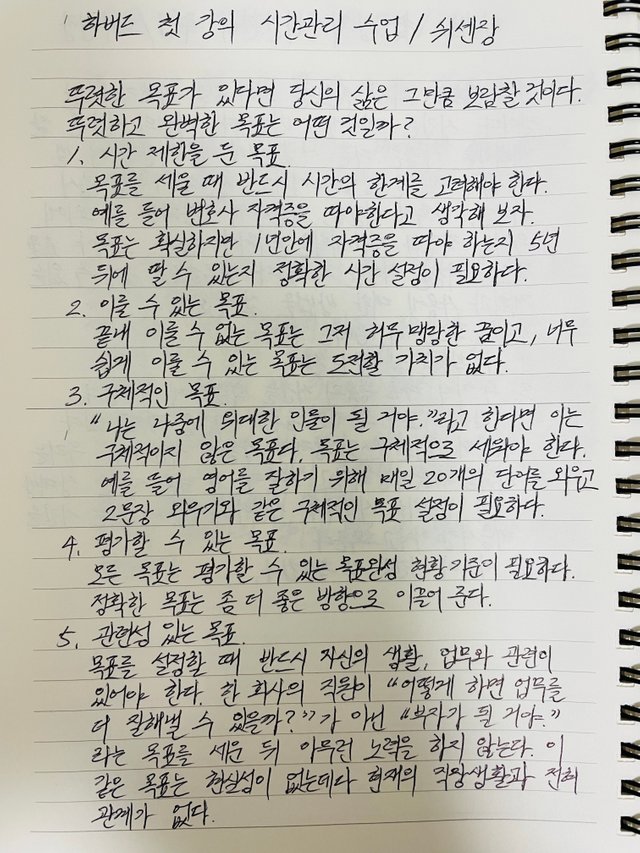 하버드 첫 강의 시간관리 수업 / 쉬셴장
뚜렷한 목표가 있다면 당신의 삶은 그만큼 보람찰 것이다.
뚜렷하고 완벽한 목표는 어떤 것일까?
1. 시간 제한을 둔 목표.
목표를 세울 때 반드시 시간의 한계를 고려해야 한다.
예를 들어 변호사 자격증을 따야한다고 생각해 보자.
목표는 확실하지만 1년안에 자격증을 따야 하는지 5년
뒤에 딸 수 있는지 정확한 시간 설정이 필요하다.
2. 이룰 수 있는 목표.
끝내 이룰 수 없는 목표는 그저 허무맹랑한 꿈이고, 너무
쉽게 이룰 수 있는 목표는 도전할 가치가 없다.
3. 구체적인 목표.
"나는 나중에 위대한 인물이 될 거야."라고 한다면 이는
구체적이지 않은 목표다. 목표는 구체적으로 세워야 한다.
예를 들어 영어를 잘하기 위해 매일 20개의 단어를 외우고
2문장 외우기와 같은 구체적인 목표 설정이 필요하다.
4. 평가할 수 있는 목표.
모든 목표는 평가할 수 있는 목표완성 현황 기준이 필요하다.
정확한 목표는 좀 더 좋은 방향으로 이끌어 준다.
5. 관련성 있는 목표.
목표를 설정할 때 반드시 자신의 생활, 업무와 관련이
있어야 한다. 한 회사의 직원이 "어떻게 하면 업무를
더 잘해낼 수 있을까?"가 아닌 "부자가 될 거야."
라는 목표를 세운 뒤 아무런 노력을 하지 않는다. 이
같은 목표는 현실성이 없는데다 현재의 직장생활과 전혀
관계가 없다.